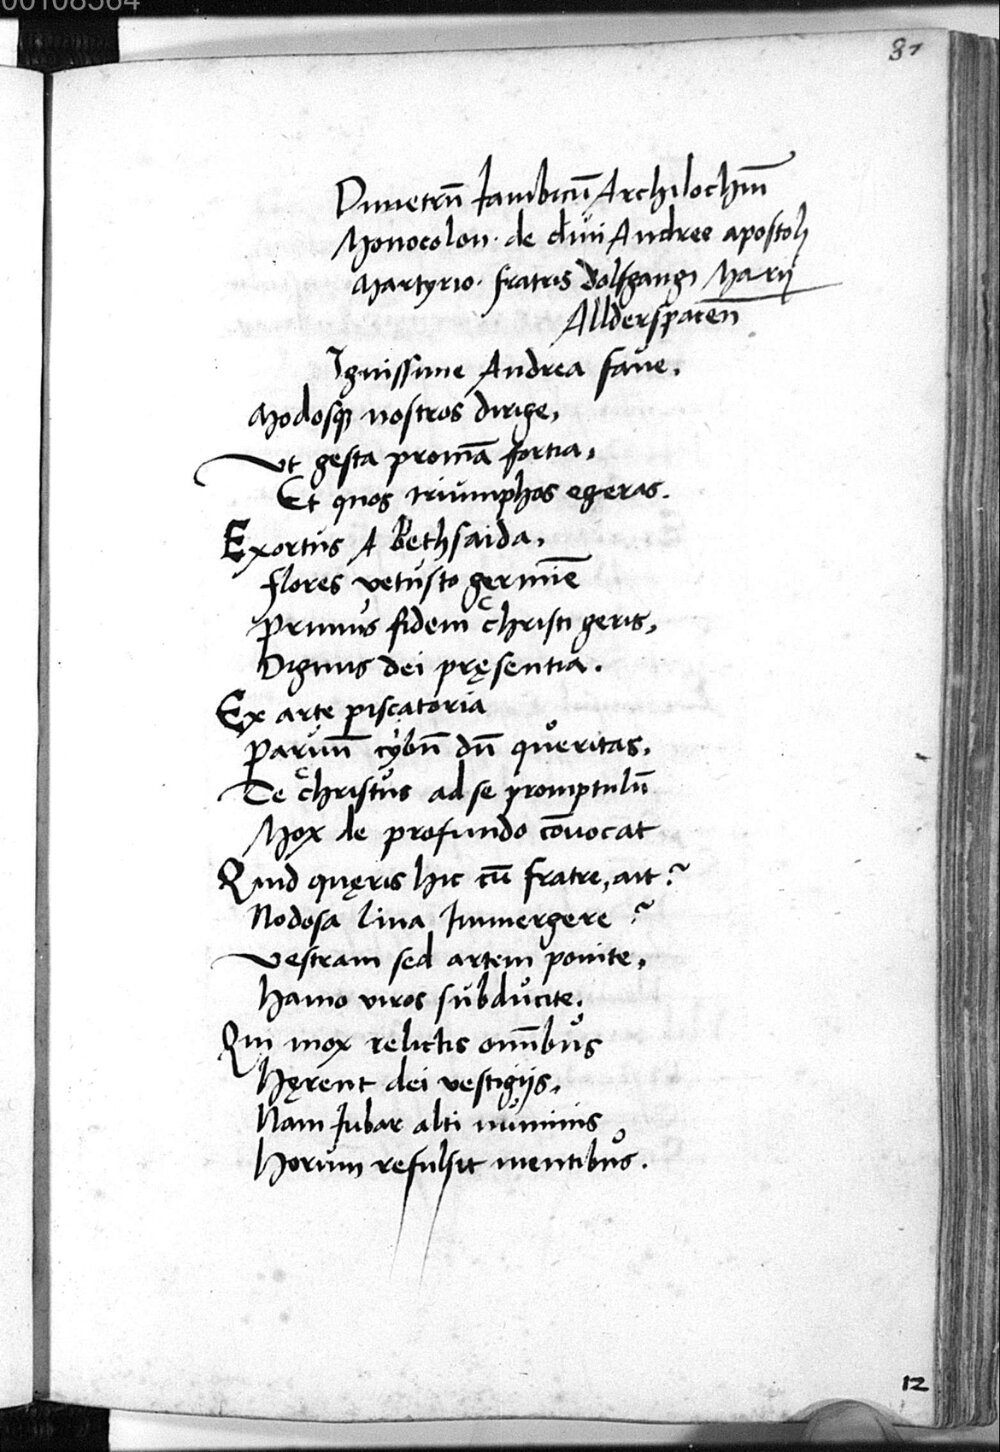 00108564
87
Dimetrū Iambicū Archilochiū
Monocolon. de diui Andree apostoli
Martyrio. fratris Volfgangi Marij
Allderspacen̄
Ignissime Andrea faue.
Modosq nostros dirige,
Vt gesta promā fortia,
Et quos triumphos egeras.
Exortus A Bethsaida,
flores vetusto germīe
Primus fidem christi geris,
Dignus dei pręsentia.
Ex arte piscatoria
Parum̄ cybū dū queritas,
Te christus ad se promptulū
Mox de profundo cōuocat
Quid quęris hic cū fratre, ait?
Nodosa lina Immergere?
Vestram sed artem ponite,
Hamo viros subducite.
Qui mox relictis om̄ibus
Hęrent dei vestigijs,
Nam Iubar alti numinis,
Horum refulsit mentibus.
12